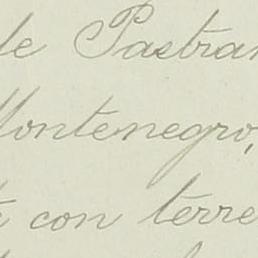 de Pastran
Montenegro,
con terre